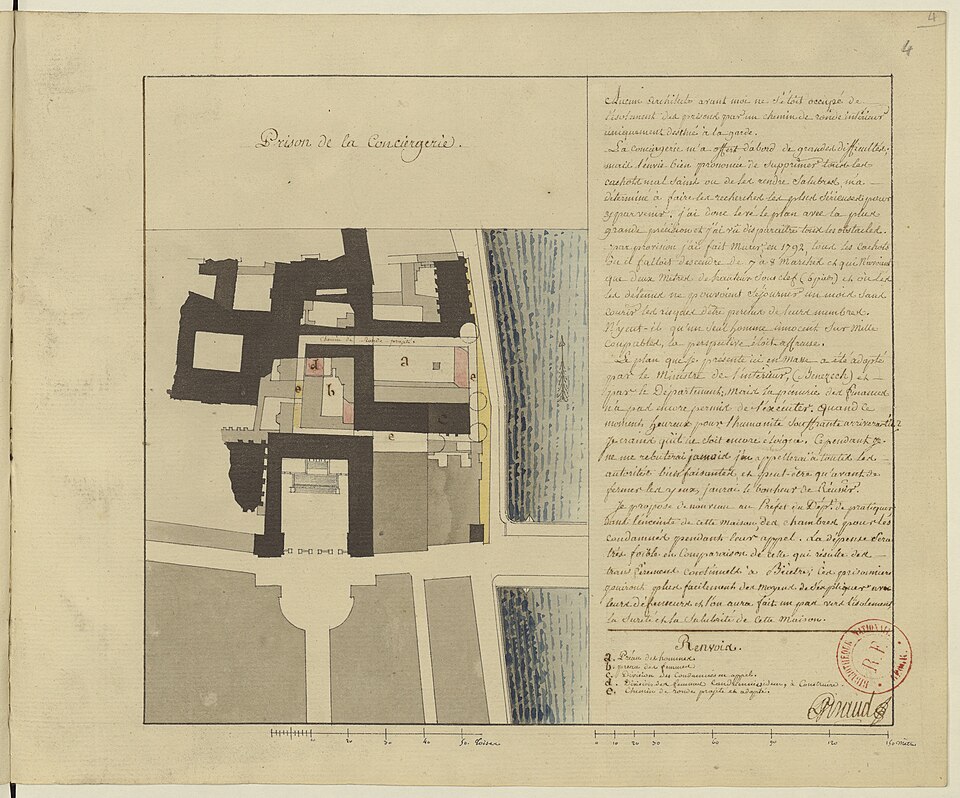 4
4
Prison de la Conciergerie.
Aucun architecte avant moi ne s'étoit occupé de
l'isolement des prisons par un chemin de ronde intérieur
uniquement destiné à la garde.
La conciergerie m'a offert d'abord de grandes difficultés;
mais l'envie bien prononcée de supprimer tous les
cachots mal sains ou de les rendre salubres m'a
déterminé à faire les recherches les plus sérieuses pour
y parvenir. j'ai donc levé le plan avec la plus
grande précision et j'ai vu disparaitre tous les obstacles.
par provision j'ai fait murer en 1792 tous les cachots
ou il falloit descendre de 7 à 8 Marches et qui n'avoient
que deux Metres de hauteur sous clef (6 pieds) et où les
les détenus ne pouvoient séjourner un mois sans
courir les risques d'être perclus de leurs membres.
N'y eut-il qu'un seul homme innocent sur mille
Coupables, la perspective étoit affreuse.
Le plan que je présente ici en masse a été adopté
par le Ministre de l'intérieur, (Benezech) et
par le Département; Mais la pénurie des finances
n'a pas encore permis de l'exécuter. Quand ce
moment heureux pour l'humanité souffrante arrivera-t-il?
Je crains qu'il ne soit encore éloigné. Cependant je
ne me rebuterai jamais j'en appellerai à toutes les
autorités bienfaisantes, et peut-être qu'avant de
fermer les yeux, j'aurai le bonheur de réussir.
Je propose de nouveau au Préfet du Dépt. de pratiquer
dans l'enceinte de cette maison, des chambres pour les
Condamnés pendant leur appel. La dépense sera
très foible en comparaison de celle qui résulte des
transférement continuels à Bicêtre; les prisonniers
pouront plus facilement des moyens de s'expliquer avec
leurs défenseurs et l'on aura fait un pas vers l'isolement
la Sureté et la Salubrité de cette Maison.
Chemin de Ronde projeté.
a
d
b
e
e
c
e
Renvois.
a. Préau des hommes
b. préau des femmes
c. Division des Condamnés en appel.
d. Division des femmes Condamnées, à Construire.
e. Chemin de ronde projeté et adopté.
BIBLIOTHEQUE NATIONALE
R.F.
Giraud
10 20 30 40 50. Toises
0 10 20 30 60 90 120 150 Metr.